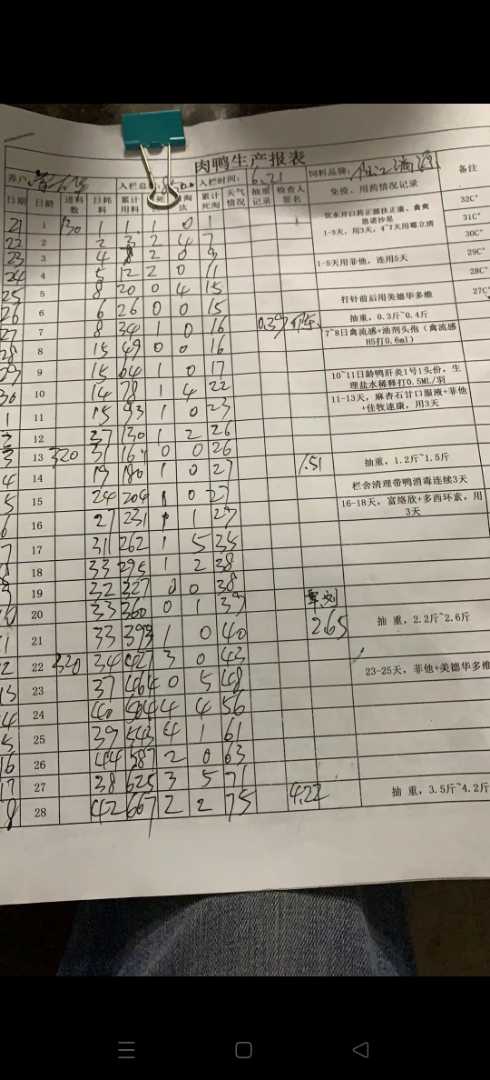 肉鸭生产报表
养户 入栏总 入栏时间: 6.21 饲料品牌:
日期 日龄 进料数 日耗料 累计用料 死 淘汰 累计死淘 天气情况 抽重记录 检查人签名 免疫、用药情况记录 备注
21 1 130 1 0 32C°
22 2 2 3 2 4 7 1-3天，用3天， 31C°
23 3 4 8 2 0 9 30C°
24 4 5 12 2 0 11 1-5天用菲他，连用5天 29C°
25 5 8 20 0 4 15 28C°
26 6 6 26 0 0 15 打针前后用美德华多维 27C°
27 7 8 34 1 0 16 0.39 抽重，0.3斤~0.4斤
28 8 15 49 0 0 16 7~8日禽流感+油剂头孢（禽流感H5打0.6ml）
29 9 15 64 1 0 17
30 10 14 78 1 4 22 10~11日龄鸭肝炎1号1头份，生理盐水稀释打0.5ML/羽
1 11 15 93 1 0 23 11-13天，麻杏石甘口服液+菲他+佳牧速康，用3天
12 37 130 1 2 26
3 13 320 31 161 0 0 26
4 14 19 180 1 0 27 1.51 抽重，1.2斤~1.5斤
5 15 24 204 1 0 27 栏舍清理带鸭消毒连续3天
6 16 27 231 1 29 16-18天，富络欣+多西环素，用3天
7 17 31 262 1 5 35
8 18 33 295 1 2 38
19 32 327 0 0 38
20 33 360 0 1 39
21 33 393 1 0 40 2.65 抽 重，2.2斤~2.6斤
22 320 34 427 3 0 43
23 37 464 0 5 48 23-25天，菲他+美德华多维
24 40 504 4 4 56
25 39 543 4 1 61
26 44 587 2 0 63
27 38 625 3 5 71
28 42 667 2 2 75 4.22 抽 重，3.5斤~4.2斤